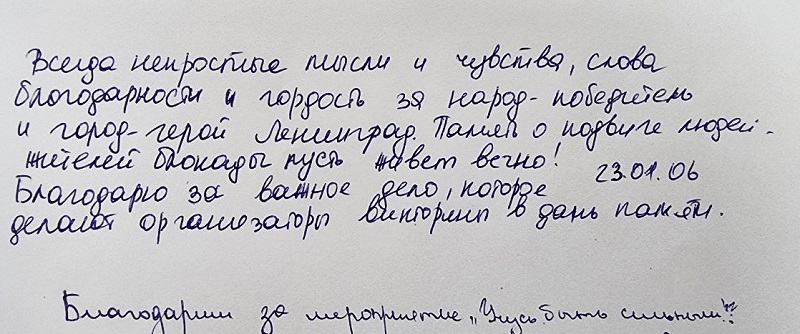 Всегда непростые мысли и чувства, слова
благодарности и гордость за народ-победитель
и город-герой Ленинград. Память о подвиге людей-
жителей блокады пусть живет вечно!
23.01.06
Благодарю за важное дело, которое
делают организаторы викторины в дань памяти.
Благодарим за мероприятие „Учусь быть сильным"!